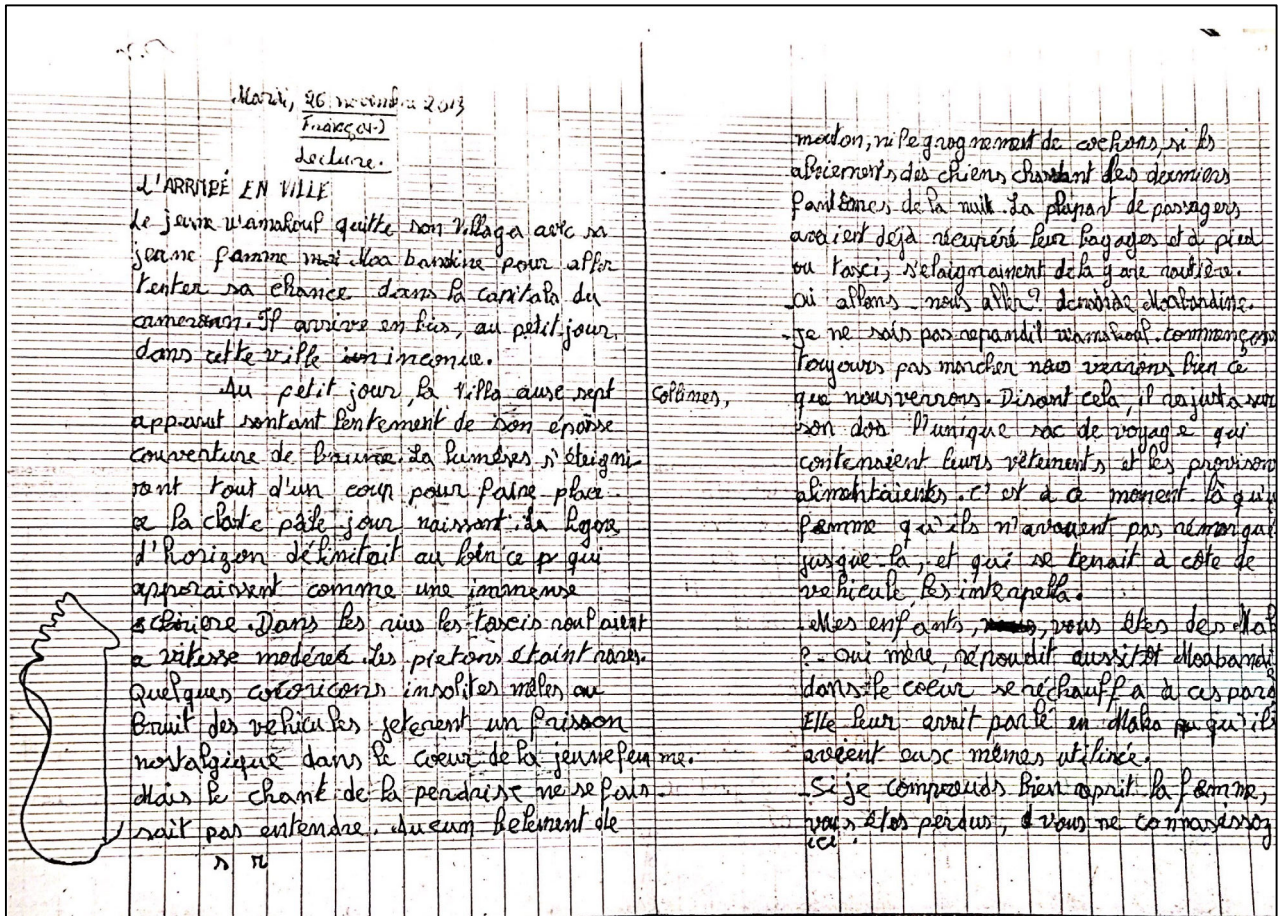 Mardi, 26 novembre 2013
Français
Lecture.
L'ARRIBÉ EN VILLE
Le jeune wamakoul quitte son village avec sa
jeune famme Moa bandine pour aller
tenter sa chance dans la capitala du
cameroun. Il arrive en bus, au petit jour,
dans cette ville inconue.
Au petit jour, la villa ause sept collines,
apparut sontant lentement de son épasse
couverture de brume. La lumères s'éteigni
rent tout d'un coup pour faire place
a la clarte pâle jour naissant. La ligne
d'horizon délimitait au loin ce p qui
apporaissent comme une immense
clairiere. Dans les rius les tascis roulaient
a vitesse modérée. Les pietons étaint rares.
Quelques cocoricons insolites mêles au
bruit des vehicules jeterent un frisson
nostalgique dans le coeur de la jeune femme.
Mais le chant de la perdrise ne se fais
sait pas entendre. Aucum belement de
s r
moton, ni le grognement de cochons, ni ls
aboiements des chiens chassant les dermiers
fantômes de la nuit. La plupart de passagers
avaient déjà récupéré leur bagages et à pied
ou tasci, s'elaignainent de la gare routière.
- Où allons-nous aller? demande Moabandine.
- Je ne sais pas repandit wamakoul. commençons
toujours pas marcher nous verrons bien ce
que nous verrons. Disant cela, il rajusta sur
son dos l'unique sac de voyage qui
contenaient leurs vêtements et les provison
alimentaientes. C'est à ce moment-là qu'u
femme qu'ils n'avouent pas rémarqué
jusque-là, et qui se tenait à côte de
vehicule, les interpella.
- Mes enfants, vous êtes des Mak
? - Oui mère, répoudit aussitôt Moabandi
dans le coeur se réchauffa à ces paro
Elle leur avait parlé en Maka qu'ils
avaient ausc mêmes utilisée.
- Si je compreuds bien reprit la femme,
vous êtes perdus, vous ne connaissez
ici.